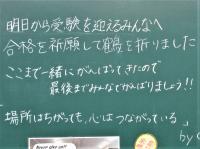 明日から受験を迎えるみんなへ
合格を祈願して鶴を折りました
ここまで一緒にがんばってきたので
最後までみんなでがんばりましょう!!
場所はちがっても、心はつながっている」
by